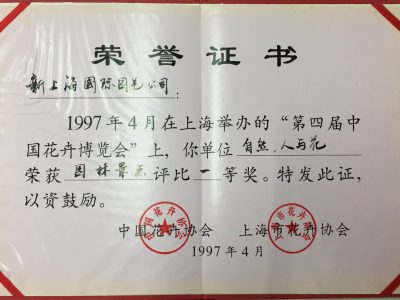 荣誉证书
新上海国际园艺公司：
1997年4月在上海举办的“第四届中
国花卉博览会”上，你单位自然、人与花
荣获园林景点评比一等奖。特发此证，
以资鼓励。
中国花卉协会 上海市花卉协会
1997年4月
中国花卉协会
上海市花卉协会